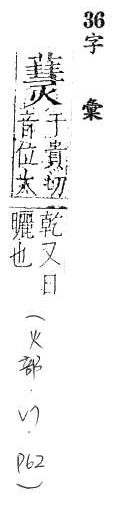 36字彙
于貴切
音位火
乾又日
曬也
(火部. . P62)